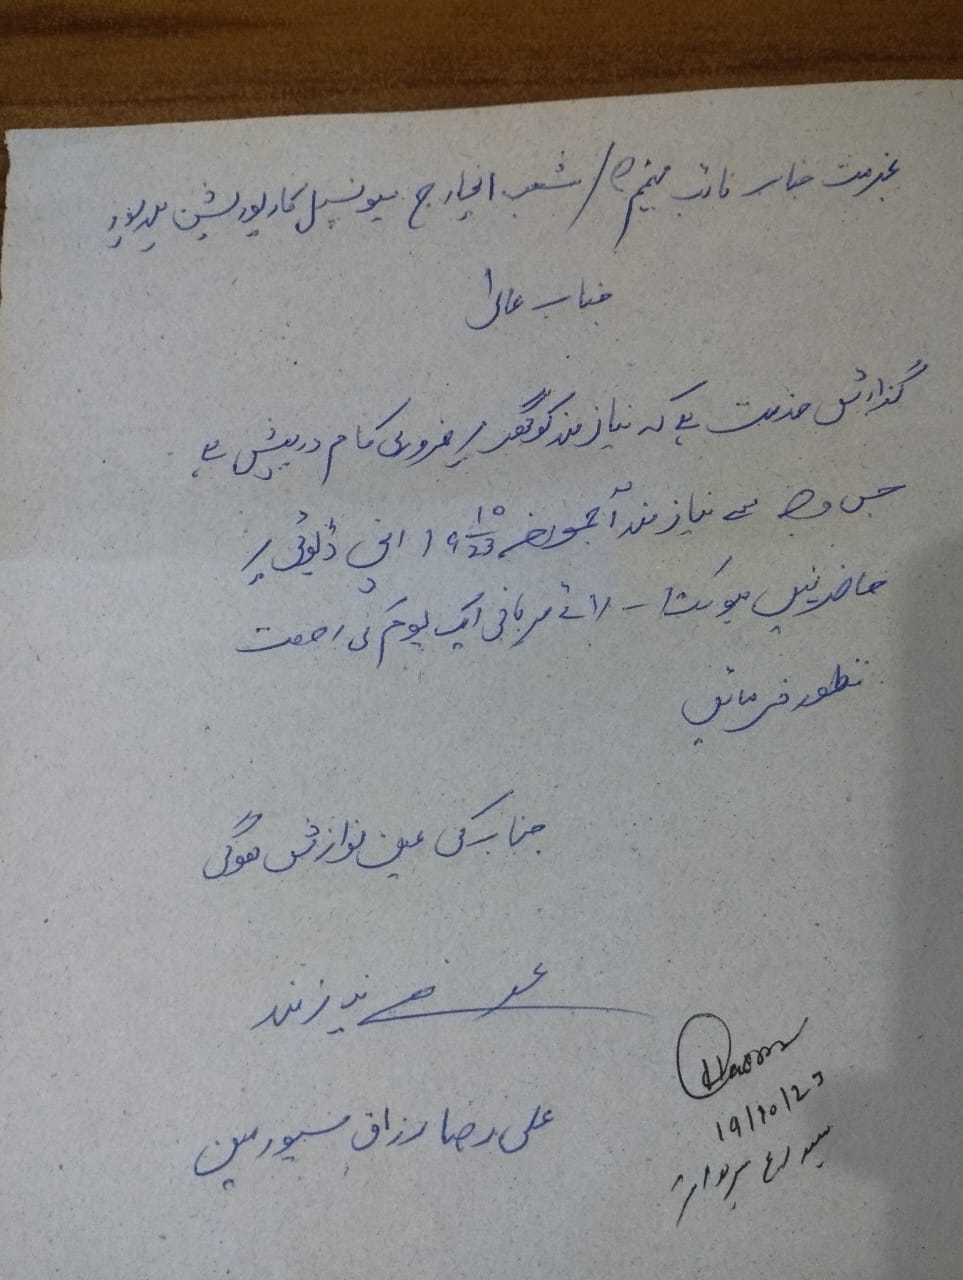 بخدمت جناب نائب مہتمم / شعبہ انچارج میونسپل کارپوریشن
جناب عالی!
گذارش خدمت ہے کہ نیازمند کو گھر پر ضروری کام درپیش ہے
جس وجہ سے نیازمند آج مورخہ 19 10/23 اپنی ڈیوٹی پر
حاضر نہیں ہو سکتا - برائے مہربانی ایک یوم کی رخصت
منظور فرمائیں
جناب کی عین نوازش ہوگی
عرضے نیازمند
علی رضا رزاق سیورمین
19/10/23